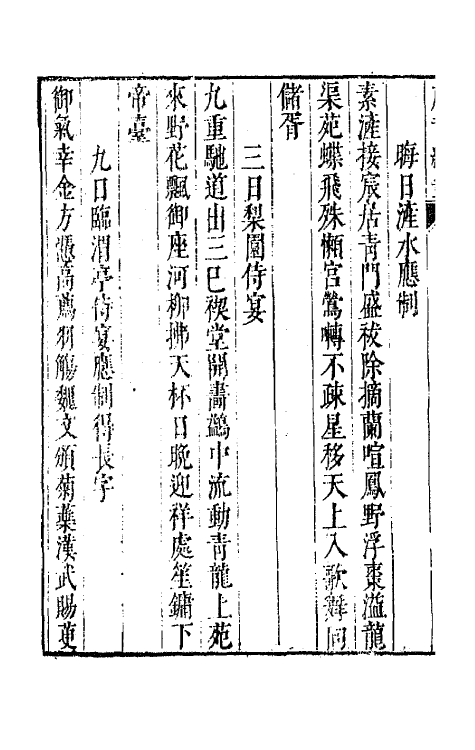 晦日滻水應制
素滻接宸居靑門盛袚除摘蘭喧鳳野浮棗溢龍
渠苑蝶飛殊懶宮鶯囀不疎星移天上入歌舞向
儲胥
三日梨園侍宴
九重馳道出三巳禊堂開畵鷁中流動青龍上苑
來野花飄御座河柳拂天杯日晚迎祥處笙鏞下
帝臺
九日臨渭亭侍宴應制得長字
御氣幸金方憑高薦羽觴魏文頒菊蘂漢武賜萸